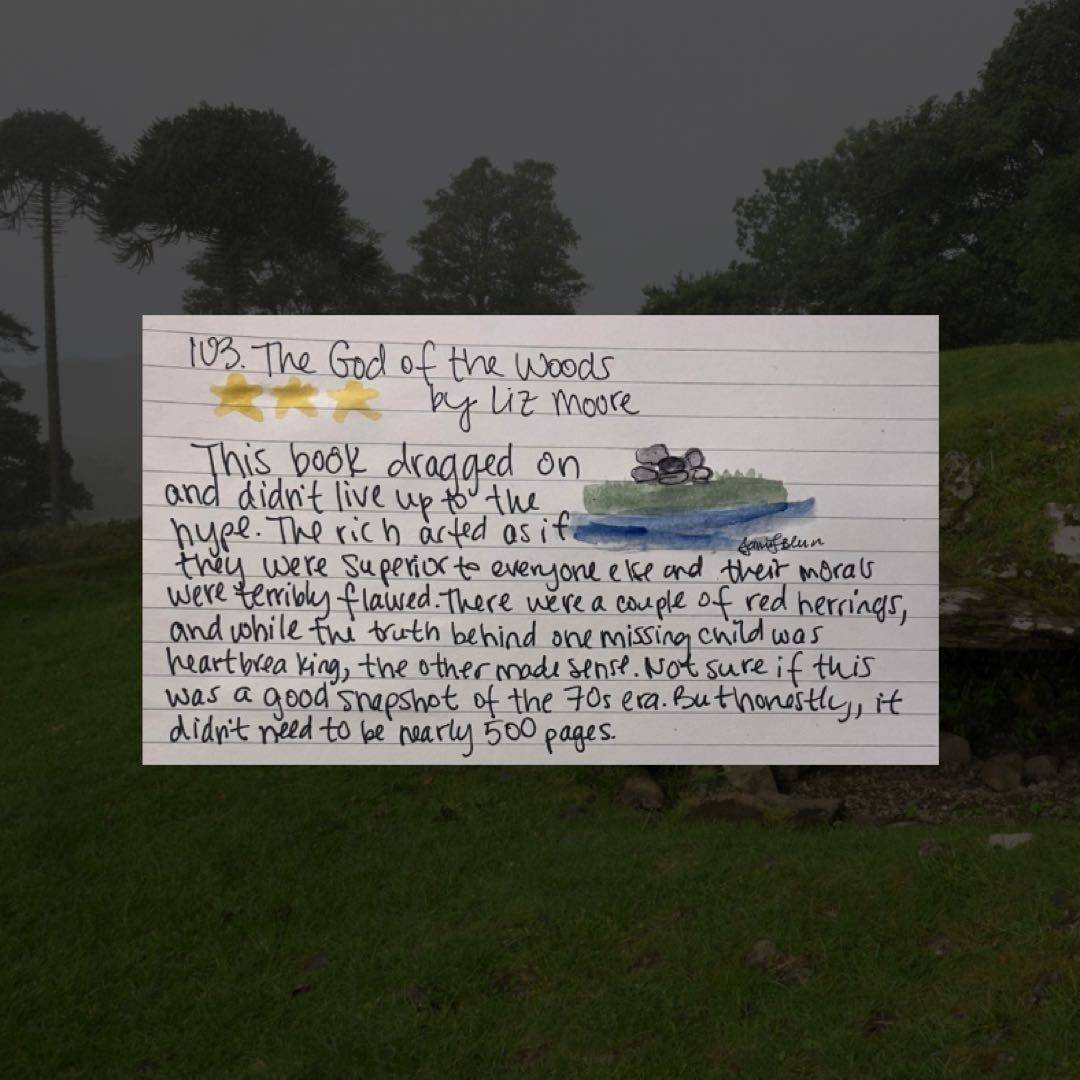 103. The God of the Woods
by Liz Moore
This book dragged on
and didn't live up to the
hype. The rich acted as if
they were superior to everyone else and their morals
were terribly flawed. There were a couple of red herrings,
and while the truth behind one missing child was
heartbreaking, the other made sense. Not sure if this
was a good snapshot of the 70s era. But honestly, it
didn't need to be nearly 500 pages.